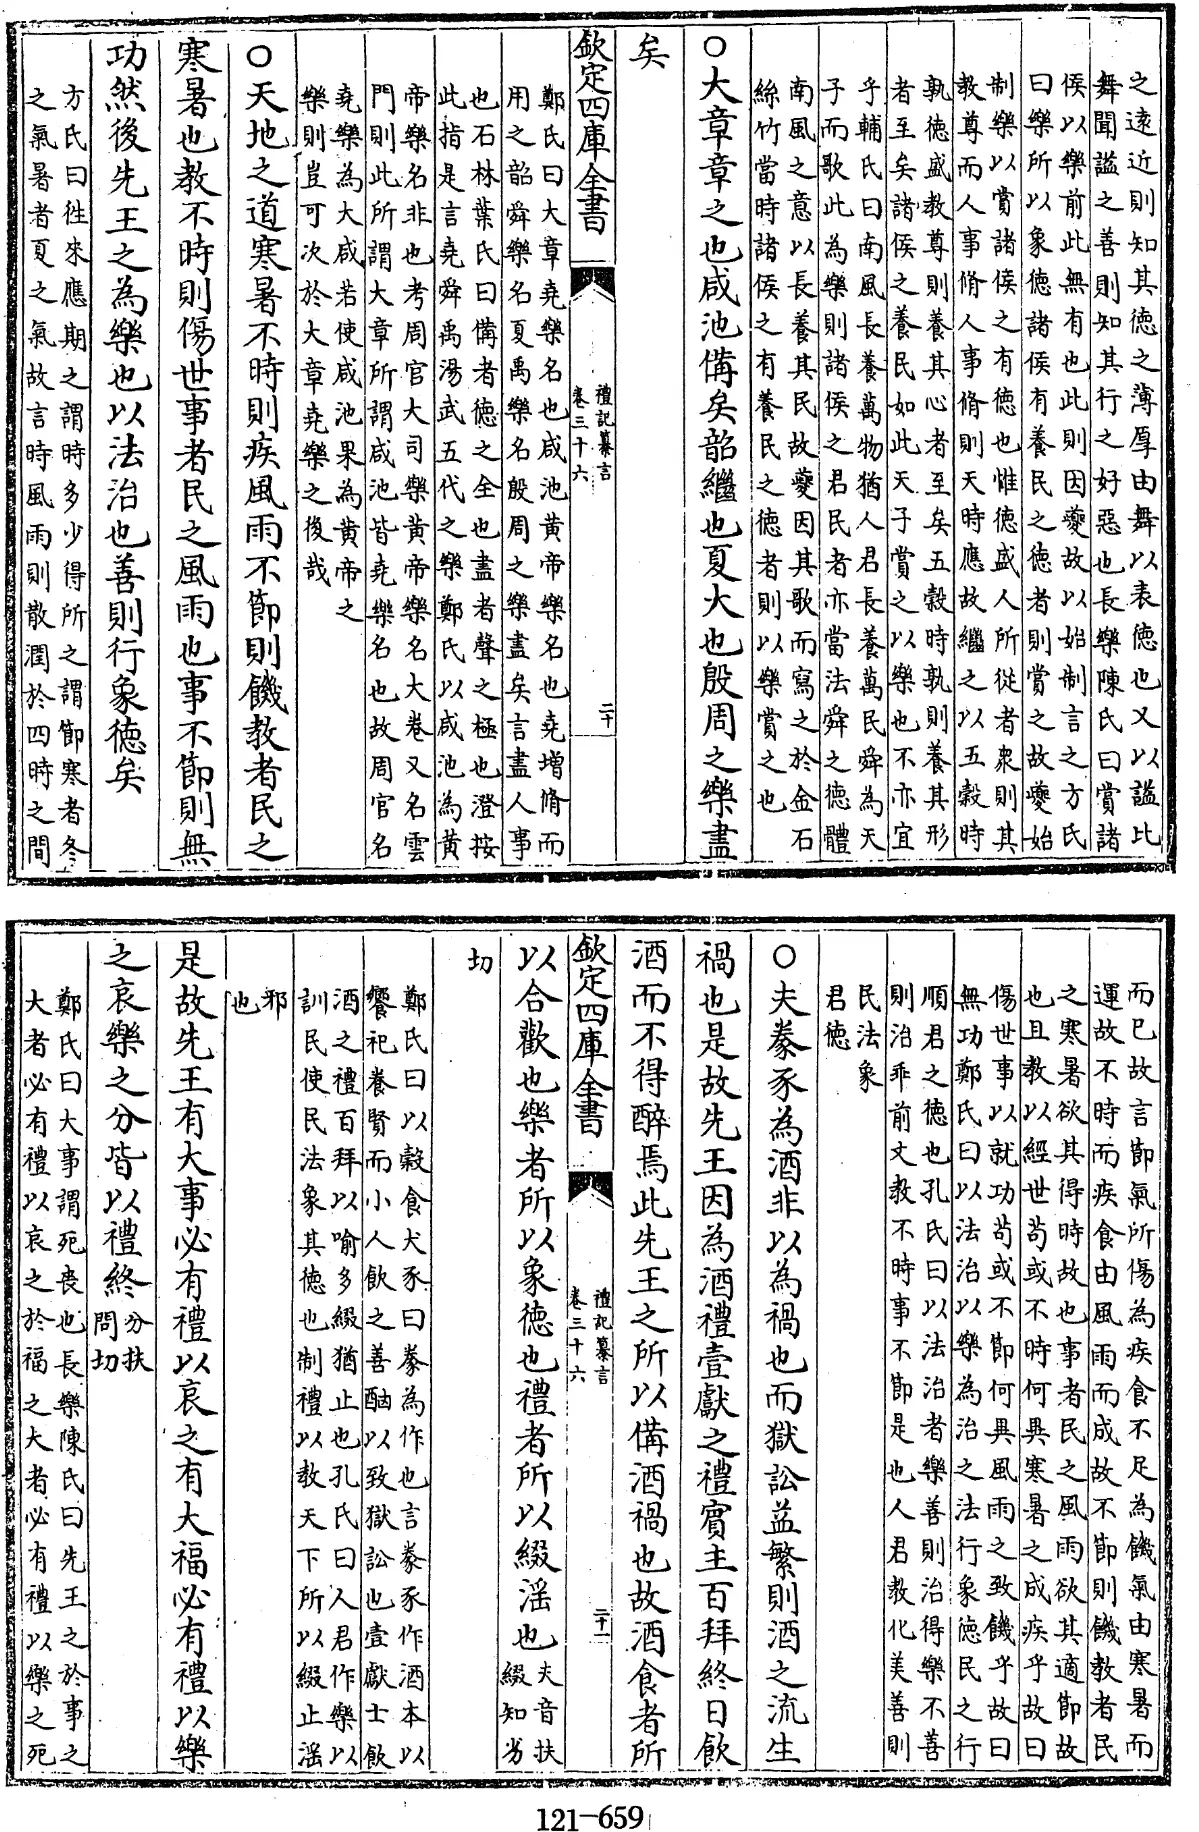 之遠近則知其徳之薄厚由舞以表徳也又以諡比
舞聞諡之善則知其行之好惡也長樂陳氏曰賞諸
侯以樂前此無有也此則因夔故以始制言之方氏
曰樂所以象徳諸侯有養民之徳者則賞之故夔始
制樂以賞諸侯之有徳也惟徳盛人所從者衆則其
教尊而人事脩人事脩則天時應故繼之以五穀時
孰徳盛教尊則養其心者至矣五穀時孰則養其形
者至矣諸侯之養民如此天子賞之以樂也不亦宜
乎輔氏曰南風長養萬物猶人君長養萬民舜為天
子而歌此為樂則諸侯之君民者亦當法舜之徳體
南風之意以長養其民故夔因其歌而寫之於金石
絲竹當時諸侯之有養民之徳者則以樂賞之也
○大章章之也咸池備矣韶繼也夏大也殷周之樂盡
矣
欽定四庫全書
禮記纂言
卷三十六
二十
鄭氏曰大章堯樂名也咸池黄帝樂名也堯增脩而
用之韶舜樂名夏禹樂名殷周之樂盡矣言盡人事
也石林葉氏曰備者徳之全也盡者聲之極也澄按
此指是言堯舜禹湯武五代之樂鄭氏以咸池為黄
帝樂名非也考周官大司樂黄帝樂名大卷又名雲
門則此所謂大章所謂咸池皆堯樂名也故周官名
堯樂為大咸若使咸池果為黄帝之
樂則豈可次於大章堯樂之後哉
○天地之道寒暑不時則疾風雨不節則饑教者民之
寒暑也教不時則傷世事者民之風雨也事不節則無
功然後先王之為樂也以法治也善則行象徳矣
方氏曰徃來應期之謂時多少得所之謂節寒者冬
之氣暑者夏之氣故言時風雨則散潤於四時之間
而已故言節氣所傷為疾食不足為饑氣由寒暑而
運故不時而疾食由風雨而成故不節則饑教者民
之寒暑欲其得時故也事者民之風雨欲其適節故
也且教以經世苟或不時何異寒暑之成疾乎故曰
傷世事以就功苟或不節何異風雨之致饑乎故曰
無功鄭氏曰以法治以樂為治之法行象徳民之行
順君之徳也孔氏曰以法治者樂善則治得樂不善
則治乖前文教不時事不節是也人君教化美善則
民法象
君徳
○夫豢豕為酒非以為禍也而獄訟益繁則酒之流生
禍也是故先王因為酒禮壹獻之禮賓主百拜終日飲
酒而不得醉焉此先王之所以備酒禍也故酒食者所
欽定四庫全書
禮記纂言
卷三十六
二十一
以合歡也樂者所以象徳也禮者所以綴淫也夫音扶綴知劣
切
鄭氏曰以穀食犬豕曰豢為作也言豢豕作酒本以
饗祀養賢而小人飲之善酗以致獄訟也壹獻士飲
酒之禮百拜以喻多綴猶止也孔氏曰人君作樂以
訓民使民法象其徳也制禮以教天下所以綴止淫
邪
也
是故先王有大事必有禮以哀之有大福必有禮以樂
之哀樂之分皆以禮終分扶問切
鄭氏曰大事謂死喪也長樂陳氏曰先王之於事之
大者必有禮以哀之於福之大者必有禮以樂之死
121-659